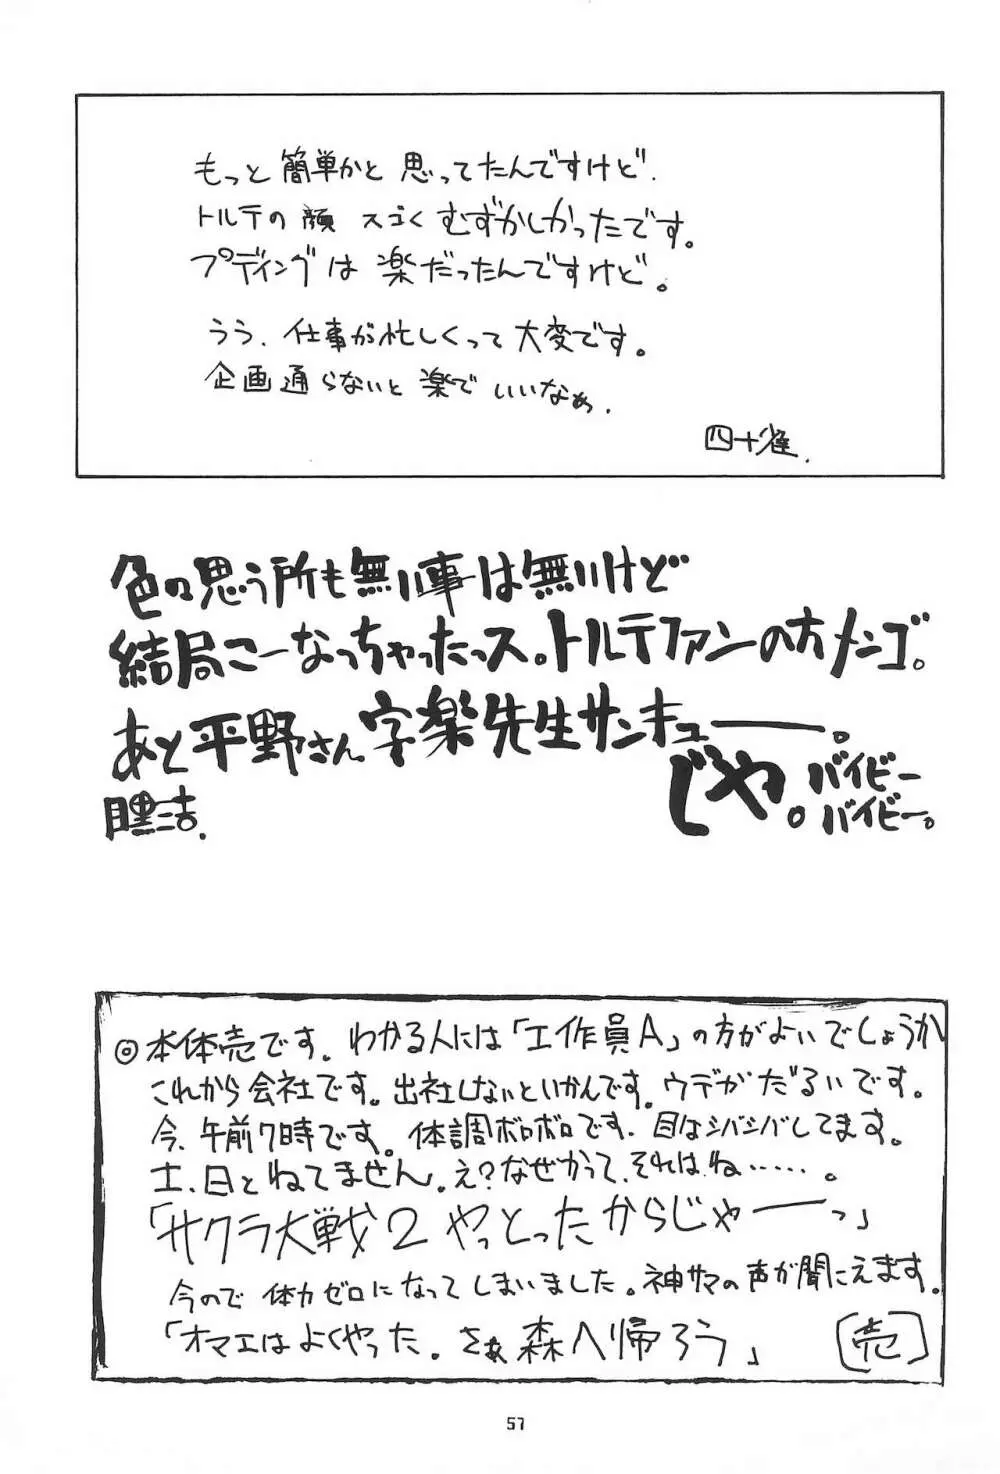 もっと簡単かと思ってたんですけど.
トルテの顔 スゴくむずかしかったです。
プディングは楽だったんですけど。
うう、仕事が忙しくって大変です。
企画通らないと楽でいいなぁ.
四十雀.
色々思う所も無い事は無いけど
結局こーなっちゃったっス。トルテファンの方メンゴ。
あと平野さん、字楽先生サンキュー――。
じゃ。バイビー
バイビー。
◎本体売です。わかる人には「工作員A」の方がよいでしょうか
これから会社です。出社しないといかんです。ウデがだるいです。
今、午前7時です。体調ボロボロです、目はシバシバしてます。
土、日とねてません。え?なぜかって、それは、ね……。
「サクラ大戦2 やっとったからじゃーーっ」
今ので体力ゼロになってしまいました。神サマの声が聞こえます。
「オマエはよくやった。さぁ森へ帰ろう」
〔売〕
57